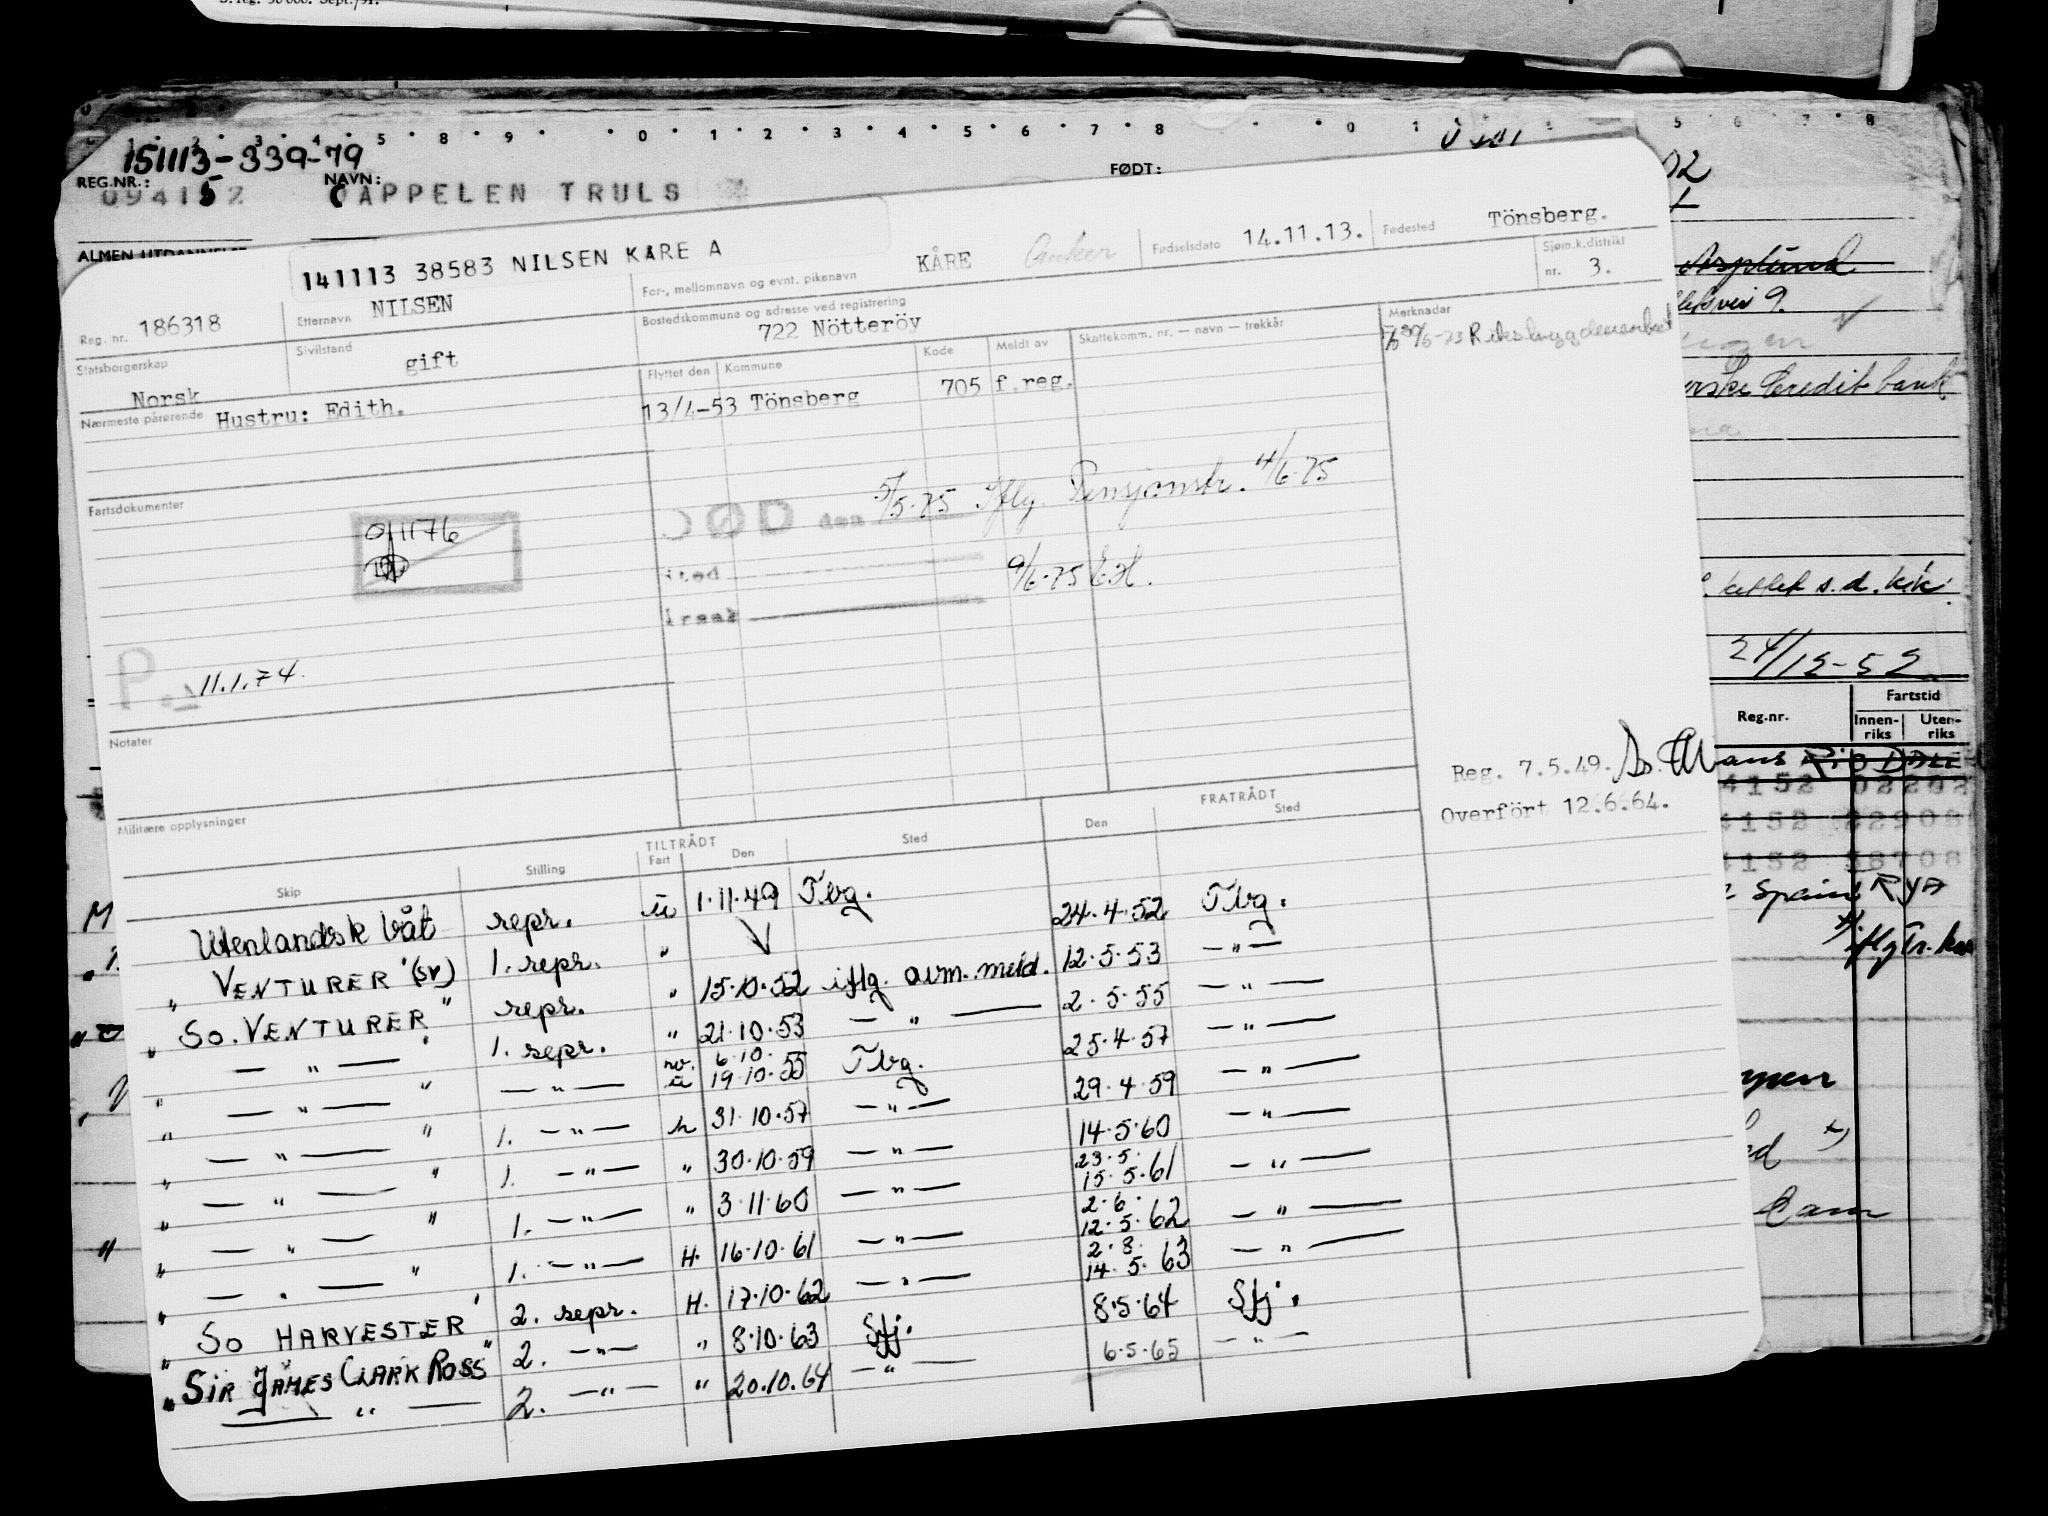 S. reg. 50 000. Sept./91.
5 8 9 0 1 2 3 4 5 6 7 8 0 1 5 6 7 8
151113-339-79
REG.NR.: NAVN: FØDT:
094152 CAPPELEN TRULS
02
ALMEN UTDANNELSE
141113 38583 NILSEN KARE A
Reg. nr. 186318
Etternavn NILSEN
For-, mellomnavn og evnt. pikenavn KÅRE Anker
Fødselsdato 14.11.13.
Fødested Tönsberg.
Statsborgerskap Norsk
Sivilstand gift
Bostedskommune og adresse ved registrering
722 Nötteröy
Sjøm.k.distrikt
nr. 3.
Nærmeste pårørende Hustru: Edith.
Flyttet den Kommune Kode Meldt av Skattekomm. nr. — navn — trekkår
13/4-53 Tönsberg 705 f.reg.
Merknader
Fartsdokumenter
011176
DØD den 5/5-75 Iflg. Pensjonstr. 4/6-75
sted 9/6-75 EH.
årsak
P. 11.1.74.
Notater
Reg. 7.5.49.
Overfört 12.6.64.
Militære opplysninger
TILTRÅDT FRATRÅDT
Skip Stilling Fart Den Sted Den Sted
Utenlandsk båt repr. u 1.11.49 Tbg. 24.4.52 Tbg.
" VENTURER" (sv) 1. repr. " 15.10.52 iflg. avm. meld. 12.5.53 — " —
" SO. VENTURER" repr. " 21.10.53 — " — 2.5.55 — " —
" — " — " 1. repr. nø. 6.10.
u 19.10.55 Tbg. 25.4.57 — " —
" — " — " — " — h 31.10.57 — " — 29.4.59 — " —
" — " — " 1. — " — " 30.10.59 — " — 14.5.60 — " —
" — " — " 1. — " — " 3.11.60 — " — 23.5.
15.5.61 — " —
" — " — " 1. — " — H. 16.10.61 — " — 2.6.
12.5.62 — " —
" — " — " 1. — " — H. 17.10.62 — " — 2.8.
14.5.63 — " —
" SO HARVESTER" 2. repr. " 8.10.63 Sfj. 8.5.64 Sfj.
" SIR JAMES CLARK ROSS" 2. — " — " 20.10.64 — " — 6.5.65 — " —
— " — 2.
9.
Credit bank
s.d. kk.
24/12-52
Fartstid
Reg.nr. Innen-riks Uten-riks
Spain
Cam